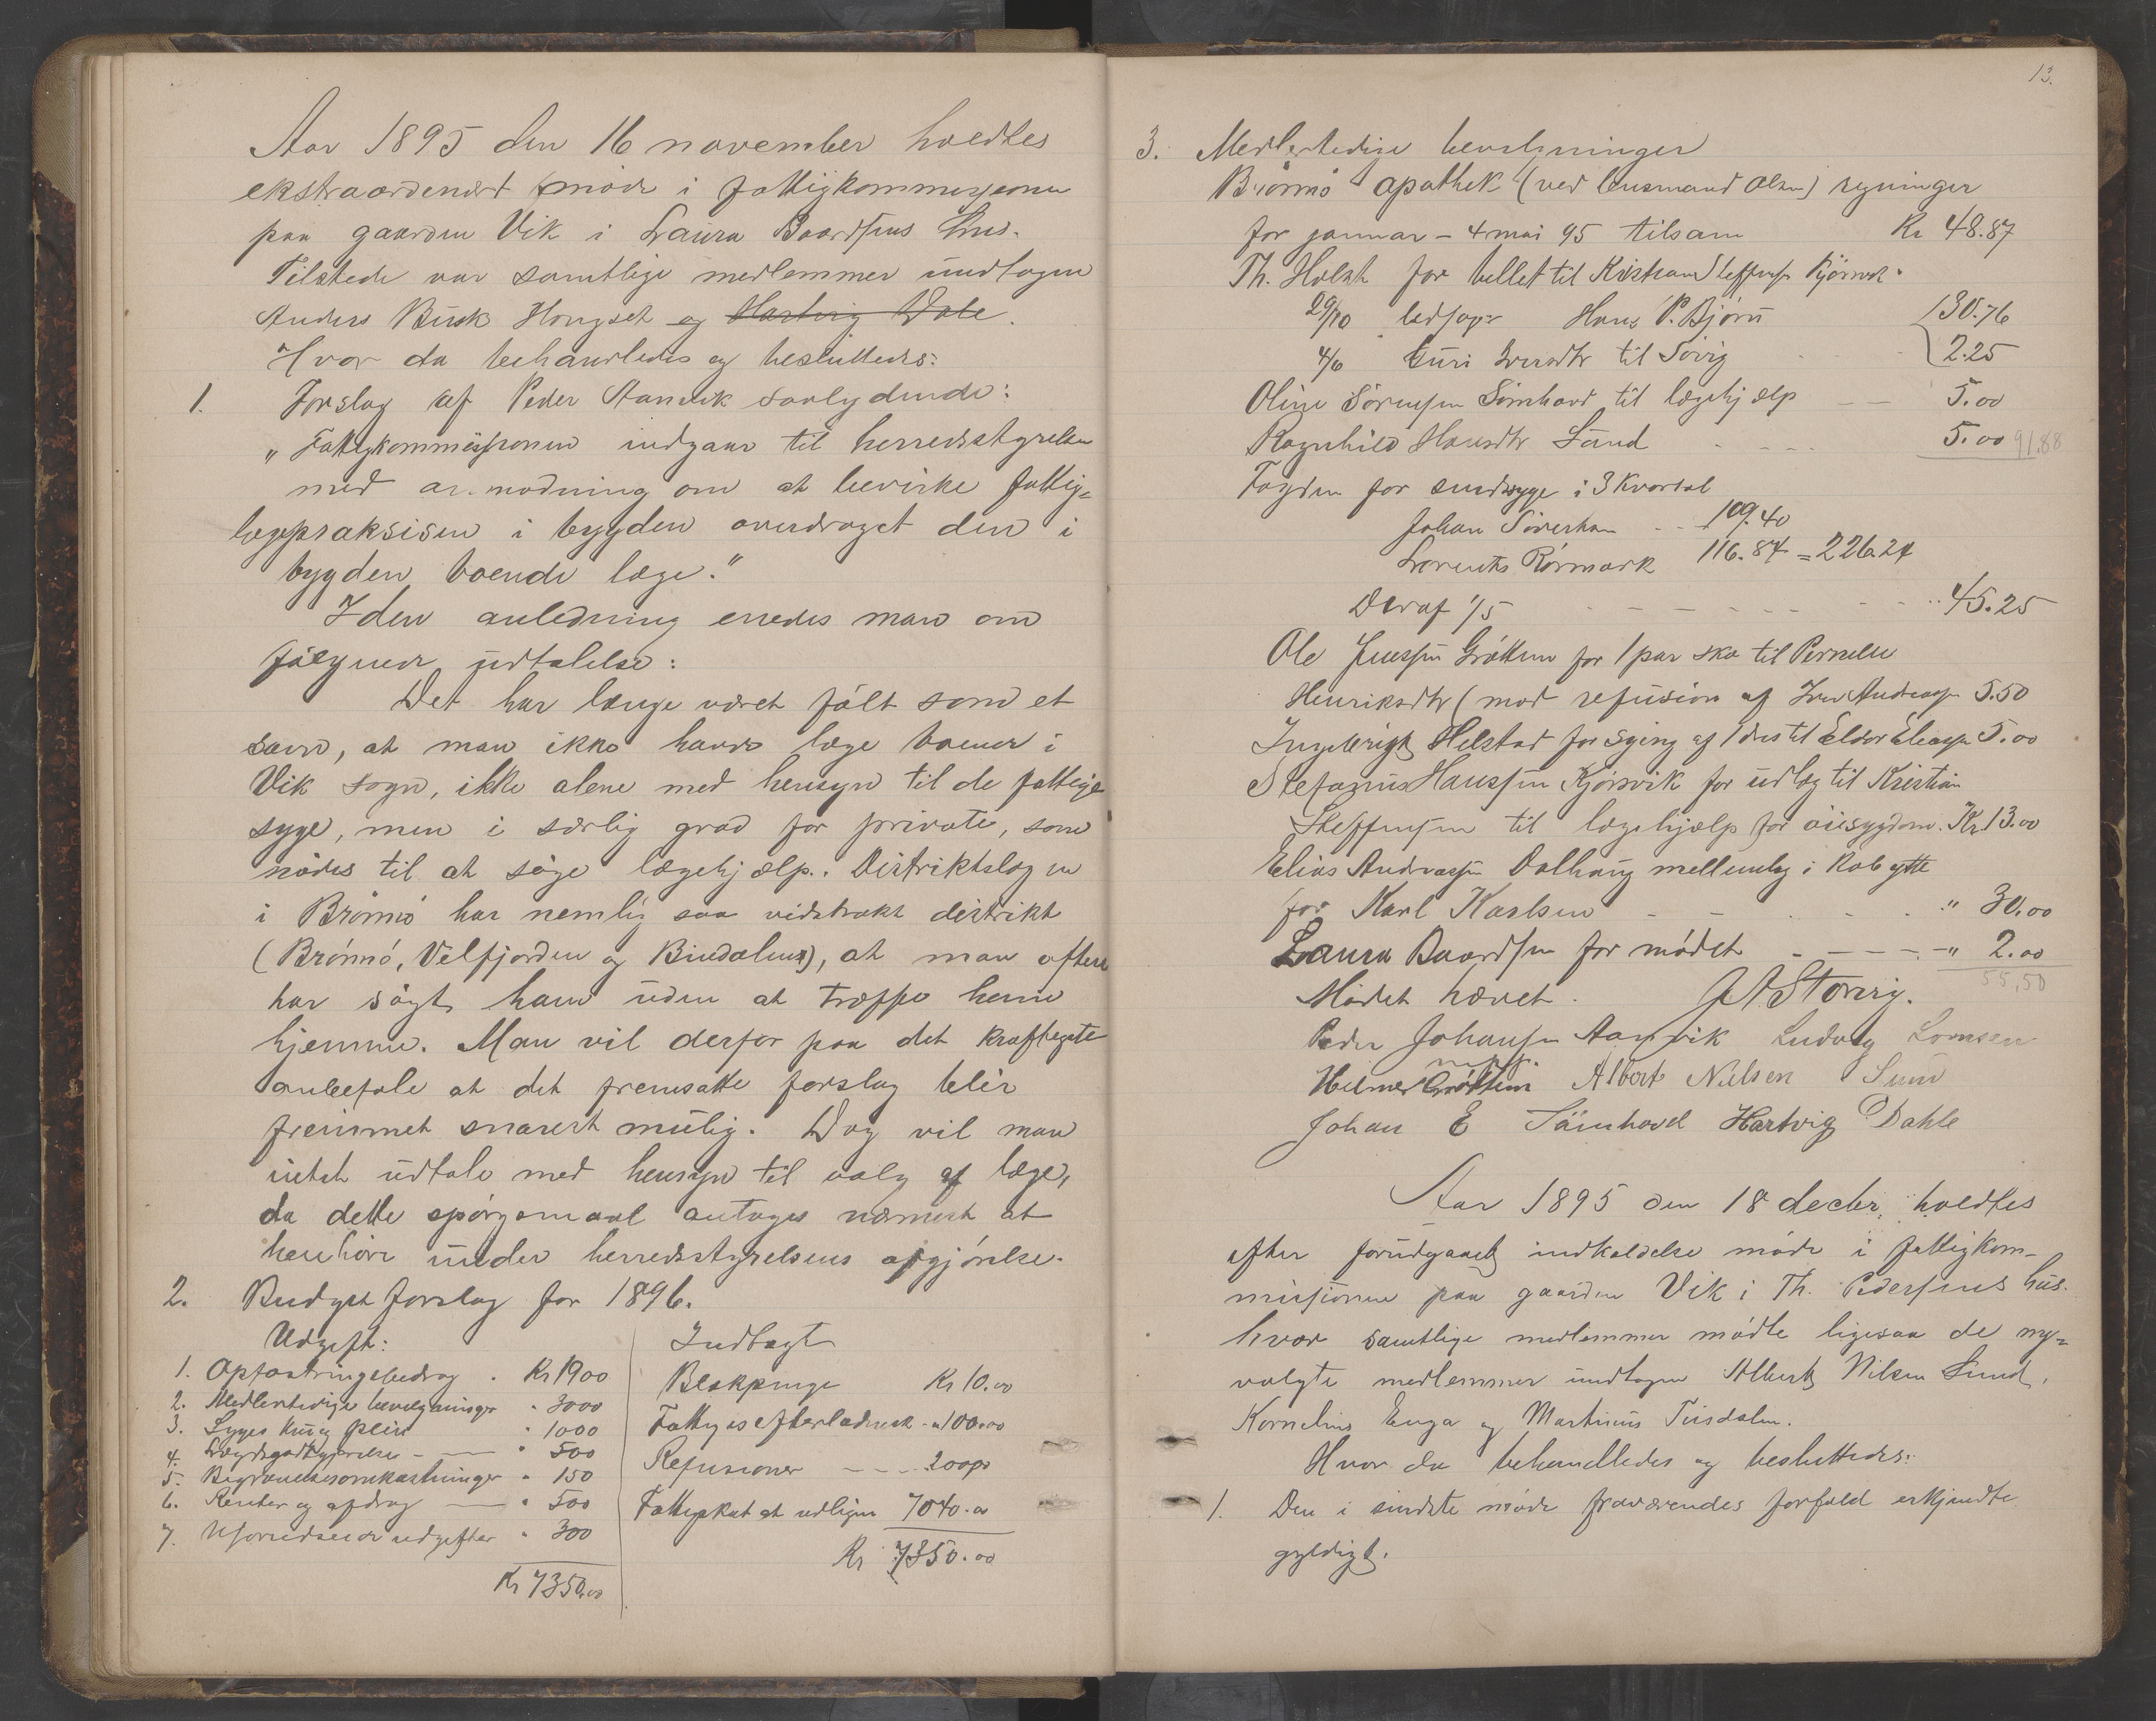 Aar 1895 den 16 november holdtes
ekstraordenært møde i fattigkommissionen
paa gaarden Vik i Laura Baardsens hus.
Tilstede var samtlige medlemmer undtagen
Anders Busk Hongset og Hartvig Dale.
Hvor da behandledes og besluttedes:
1. Forslag af Peder Aanvik saalydende:
"Fattigkommissionen indgaar til herredsstyrelsen
med anmodning om at bevirke fattig=
lægepraksisen i bygden overdraget den i
bygden boende læge."
I den anledning enedes man om
følgende udtalelse:
Det har længe været følt som et
savn, at man ikke havde læge boende i
Vik sogn, ikke alene med hensyn til de fattige
syge, men i særlig grad for private, som
nødes til at søge lægehjælp. Distriktslægen
i Brønnø har nemlig saa vidstrakt distrikt
(Brønnø, Velfjorden og Bindalen), at man oftere
har søgt ham uden at træffe ham
hjemme. Man vil derfor paa det kraftigste
anbefale at det fremsatte forslag blir
fremmet snarest mulig. Dog vil man
intet udtale med hensyn til valg af læge,
da dette spørgsmaal antages nærmest at
henhøre under herredsstyrelsens afgjørelse.
2. Budget forslag for 1896.
Udgift:
1. Opfostringsbidrag . Kr 1900
2. Medlertidige bevilgninger " 3000
3. Syges kur og pleie " 1000
4. Lægdsgodtgjørelse - — " 500
5. Begravelsesomkostninger " 150
6. Renter og afdrag — " 500
7. Uforudseede udgifter " 300
Kr 7350.00
Indtægt
Beskpenge Kr 10.00
Fattiges efterladensk - " 100.00
Refusioner — - - 200.00
Fattigskat at udligne 7040.00
Kr 7350.00
13.
3. Medlertidige bevilgninger
Brønnø apothek (ved lensmand Olsen) regninger
for januar - 4 mai 95 tilsam Kr 48.87
Th. Holst for billet til Kristian Steffensen Kjørsvik
29/10 ledsager Hans P. Bjørn 30.76
4/6 Guri Iversdtr til Søvig 2.25
Oline Sørensen Sømhovd til lægehjælp — — 5.00
Ragnhild Hansdtr Sund - - - 5.00 91.88
Fogden for sindssyge i 3 Kvartal
Johan - - 109.40
Lorents Rørmark 116.84 = 226.24
Deraf 1/5 - - - - - - 45.25
Ole Jenssen Grøttem for 1 par sko til Pernelle
Henriksdtr (mod refusion af Andreassen 5.50
Ingebrigt Helstad for sying af 1 dres til Eldor Eliasen 5.00
Stefanus Hanssen Kjørsvik for udlæg til Kristian
Steffensen til lægehjælp for øiesygdom. Kr. 13.00
Elias Andreassen Dalhaug mellemlag i kobytte
for Karl Karlsen - - - - " 30.00
Laura Baardsen for mødet - - - - " 2.00
55,50
Mødet hævet. JA Storvig.
Peder Johansen Aanvik Ludvig Lornsen
m.p.p.
Helmer Grøttem Albert Nielsen Sund
Johan E Sømhovd Hartvig Dahle
Aar 1895 den 18 decbr. holdtes
efter forudgaaet indkaldelse møde i fattigkom-
missionen paa gaarden Vik i Th. Pedersens hus.
hvor samtlige medlemmer mødte ligesaa de ny=
valgte medlemmer undtagen Albert Nilsen Sund,
Kornelius Enga og Martinus Tisdalen.
Hvor da behandledes og besluttedes:
1. Den i sidste møde fraværendes forfald erkjendte
gyldigt.